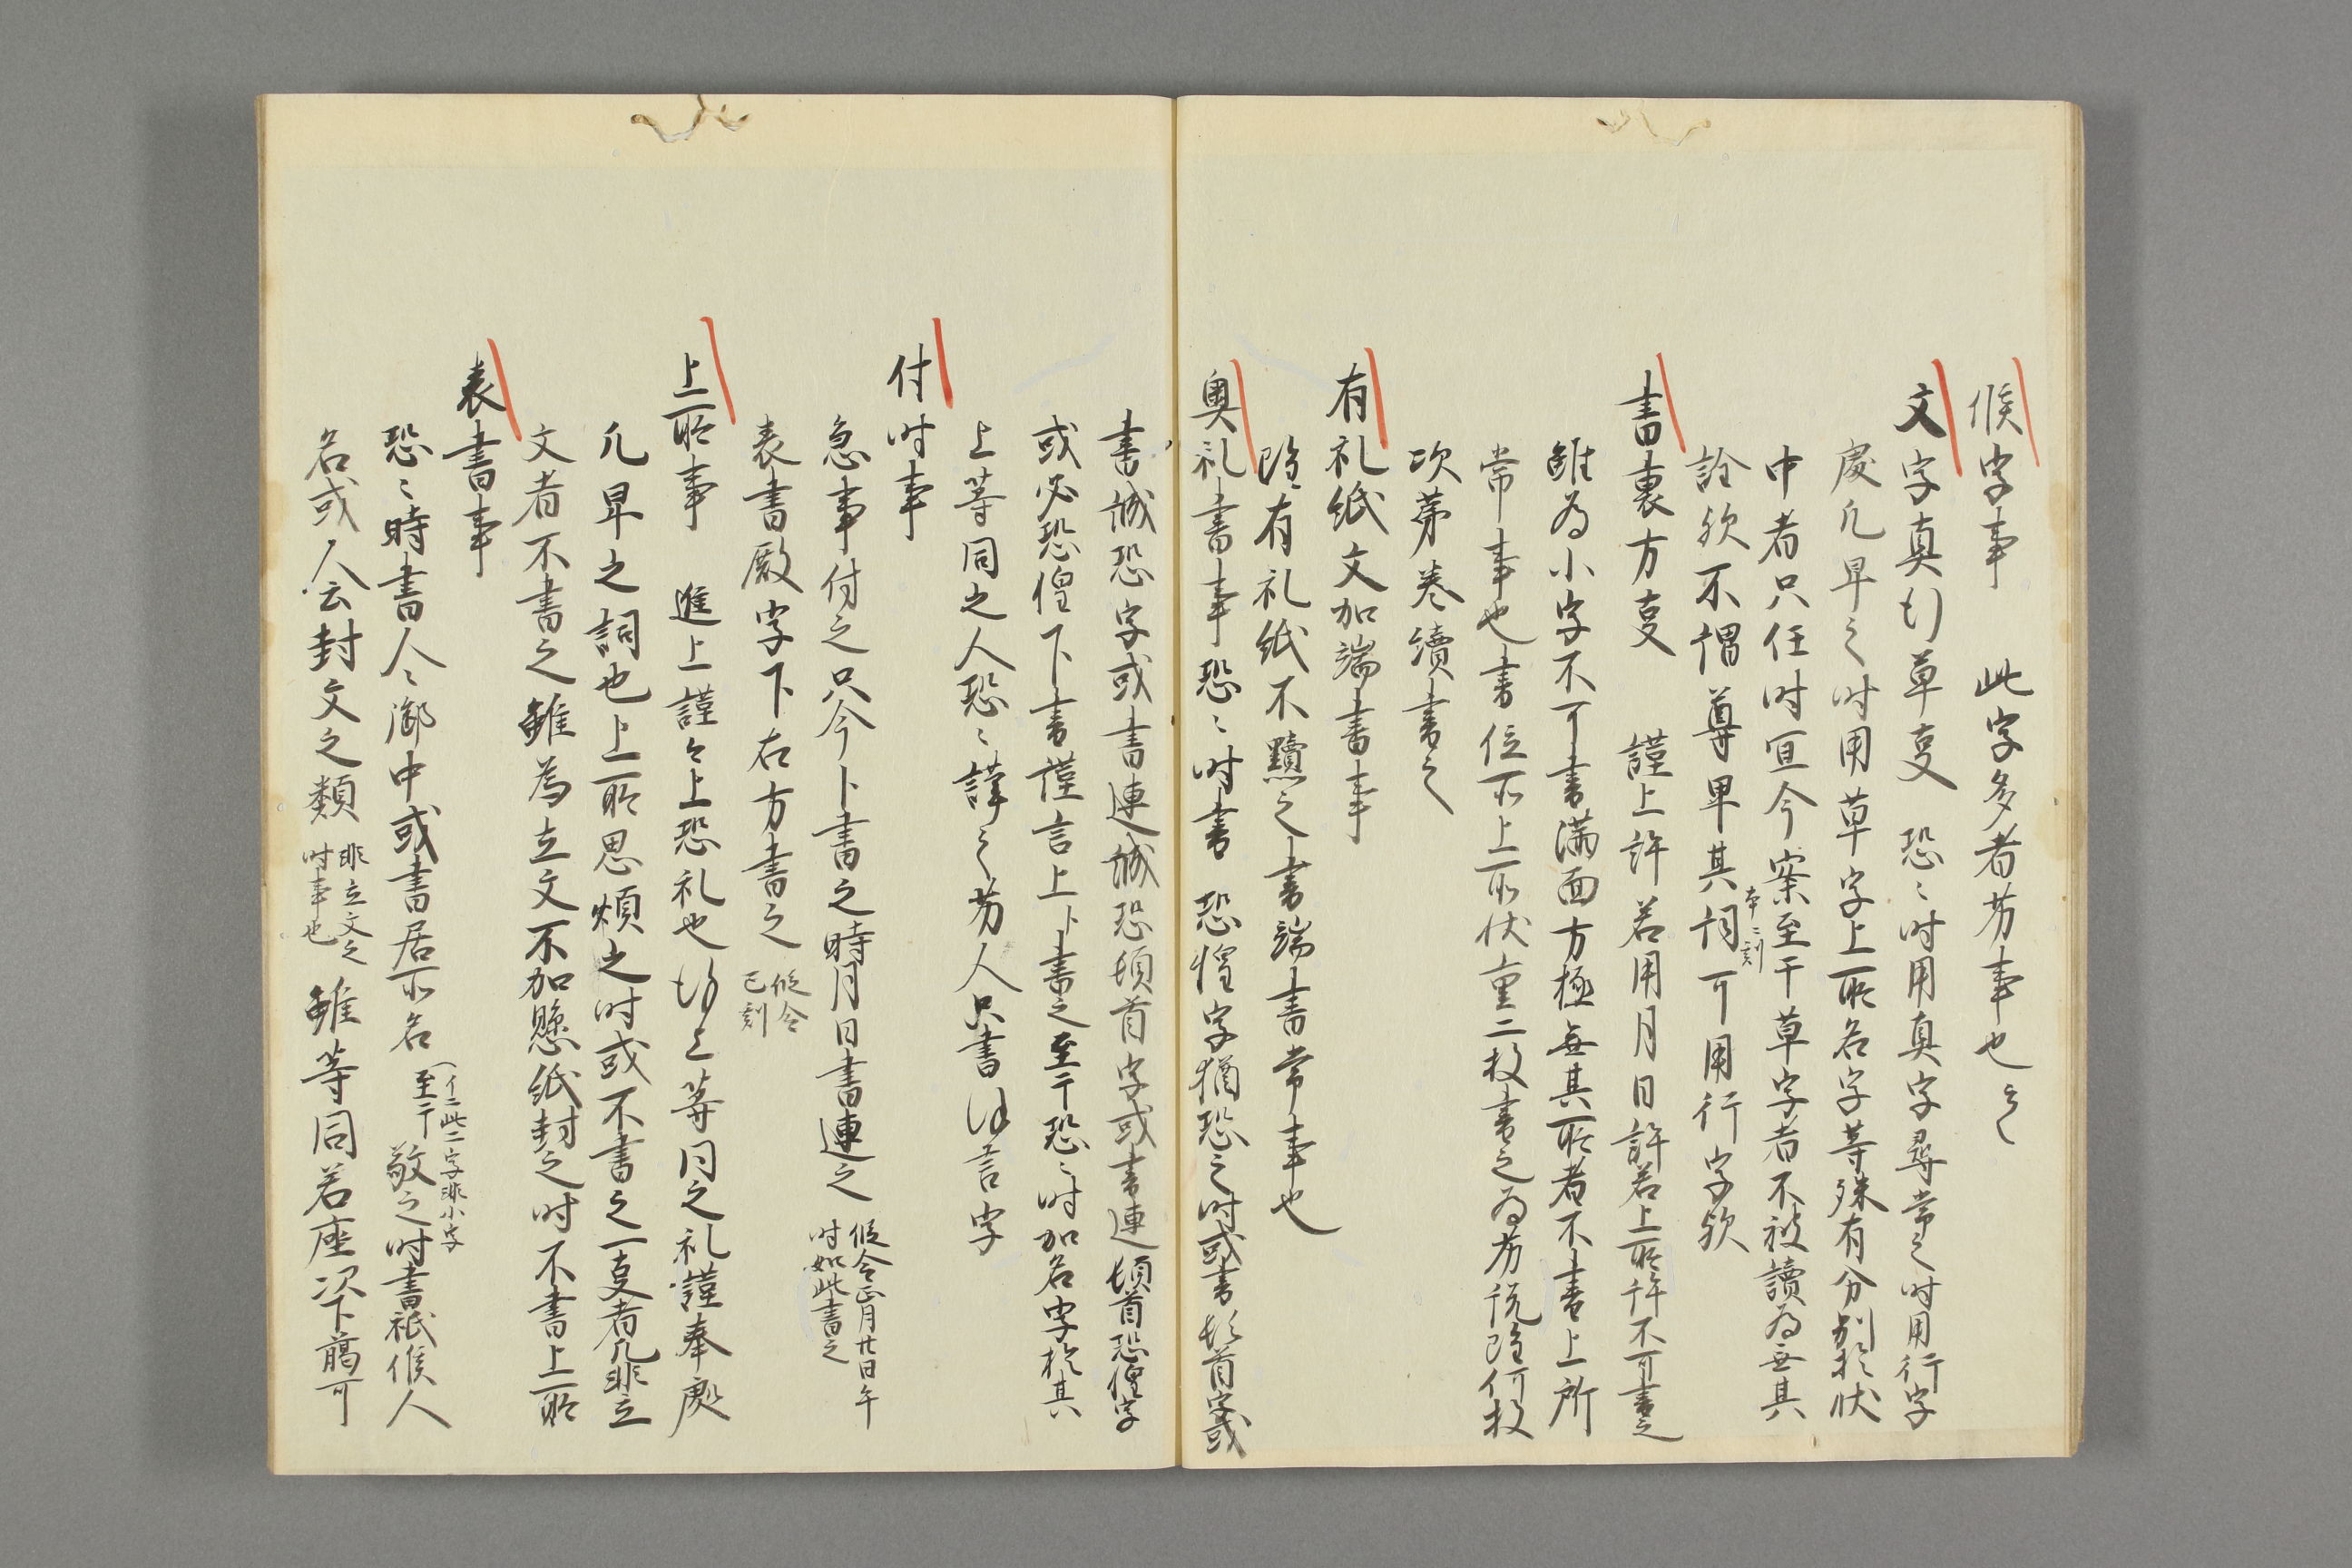 候字事　此字多者劣事也云々
文字真行草事　恐々時用真字尋常之時用行字
処凡卑之時用草字上所名字等殊有分別於状
中者只任時宜今案至于草字者不被読為無其
本ニ刻
詮歟不謂尊卑其詞可用行字歟
書裏方事　謹上許若用月日許若上所許不可書之
雖為小字不可書満面方極無其所者不書上所
常事也書位所上所状重二枚書之為劣説随何枚
次第巻続書之
有礼紙文加端書事
雖有礼紙不黷之書端書常事也
奥礼書事恐々時書恐惶字猶恐之時或書頓首字或
書誠恐字或書連誠恐頓首字或書連頓首恐惶字
或必恐惶下書謹言上卜書之至于恐々時加名字於其
上等同之人恐々謹之劣人只書謹言字
付時事
急事付之只今卜書之時月日書連之　仮令正月廿日午
時如此書之
表書殿字下右方書之　仮令
巳刻
上所事　進上謹々上恐礼也謹上等同之礼謹奉処
凡卑之詞也上所思煩之時或不書之一事者凡非立
文者不書之雖為立文不加懸紙封之時不書上所
表書事
恐々時書人々御中或書居所名（イニ此二字非小字
至于敬之時書祗候人
名或人云封文之類　非立文之
時事也　雖等同若座次下臈可